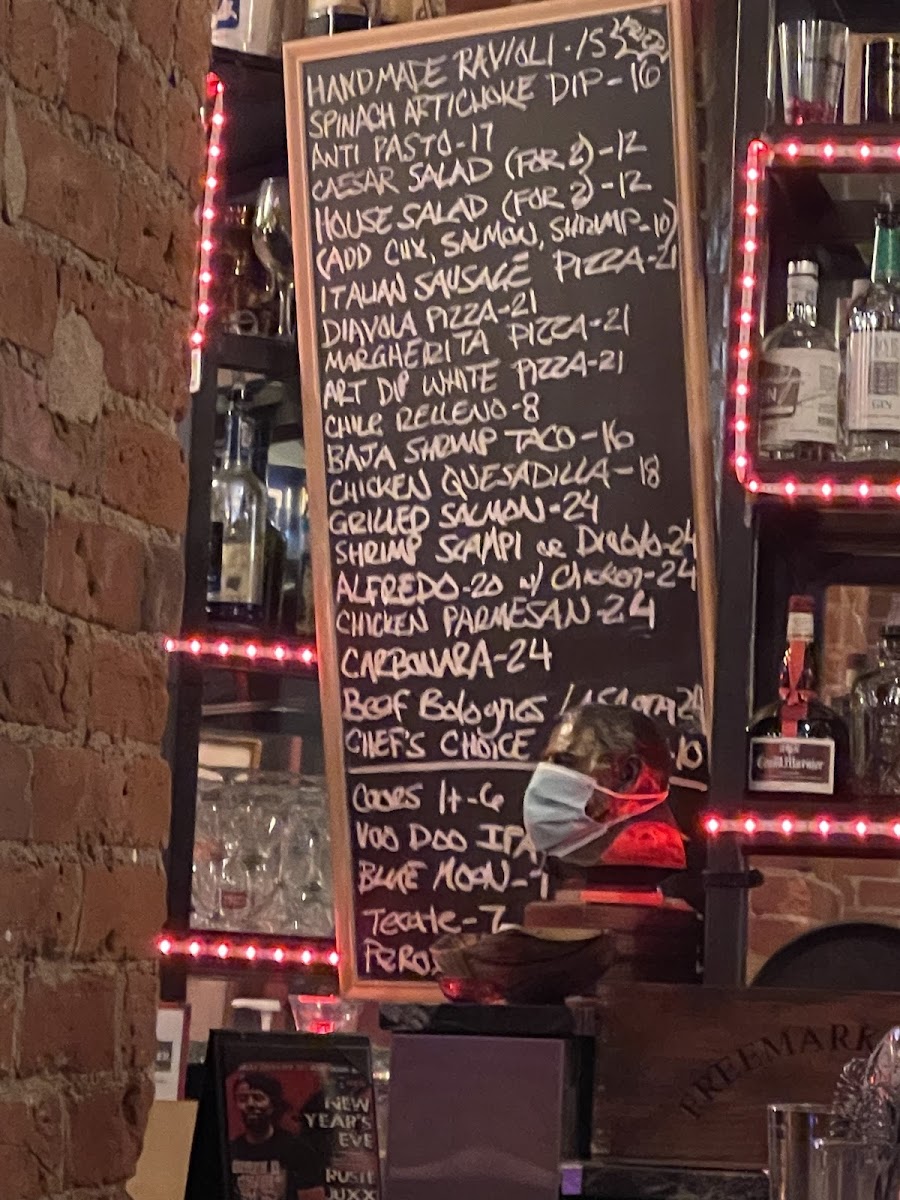 HANDMADE RAVIOLI - 15
SPINACH ARTICHOKE DIP - 16
ANTI PASTO - 17
CAESAR SALAD (FOR 2) - 12
HOUSE SALAD (FOR 2) - 12
(ADD CHX, SALMON, SHRIMP - 10)
ITALIAN SAUSAGE PIZZA - 21
DIAVOLA PIZZA - 21
MARGHERITA PIZZA - 21
ART DIP WHITE PIZZA - 21
CHILE RELLENO - 8
BAJA SHRIMP TACO - 16
CHICKEN QUESADILLA - 18
GRILLED SALMON - 24
SHRIMP SCAMPI or Diablo - 24
ALFREDO - 20 w/ Chicken - 24
CHICKEN PARMESAN - 24
CARBONARA - 24
Beef Bolognes
CHEF'S CHOICE
COORS lt - 6
VOO DOO IPA
BLUE MOON - 7
Tecate - 7
GIN
Grand Marnier
FREEMARK
NEW
YEAR'S
EVE
RUSTE
JUXX